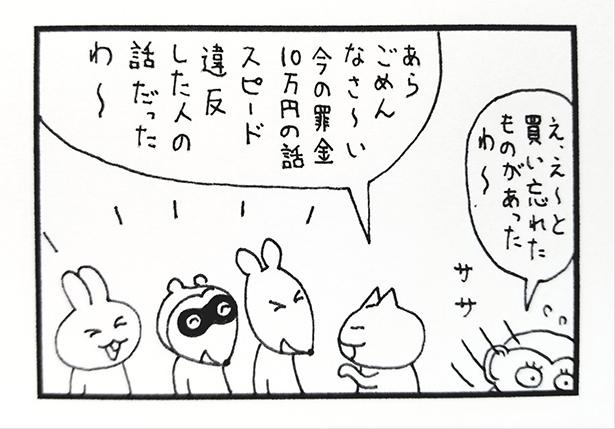 え、え〜と
買い忘れた
ものがあった
わ〜
ササ
あら
ごめん
なさ〜い
今の罪金
10万円の話
スピード
違反
した人の
話だった
わ〜